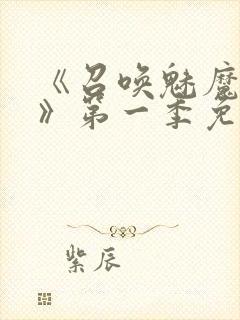 《召唤魅魔
》第一季免
紫辰